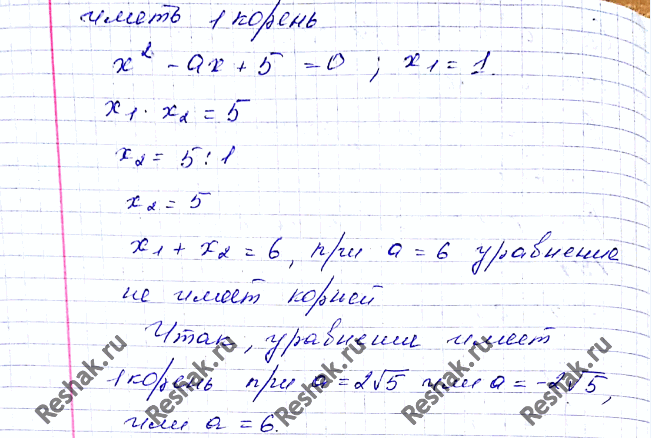 иметь 1 корень
x² - ax + 5 = 0 ; x₁ = 1.
x₁ · x₂ = 5
x₂ = 5 : 1
x₂ = 5
x₁ + x₂ = 6, при a = 6 уравнение
не имеет корней
Итак, уравнение имеет
1 корень при a = 2√5 или a = -2√5,
или a = 6.
Reshak.ru
Reshak.ru
Reshak.ru
Reshak.ru
Reshak.ru